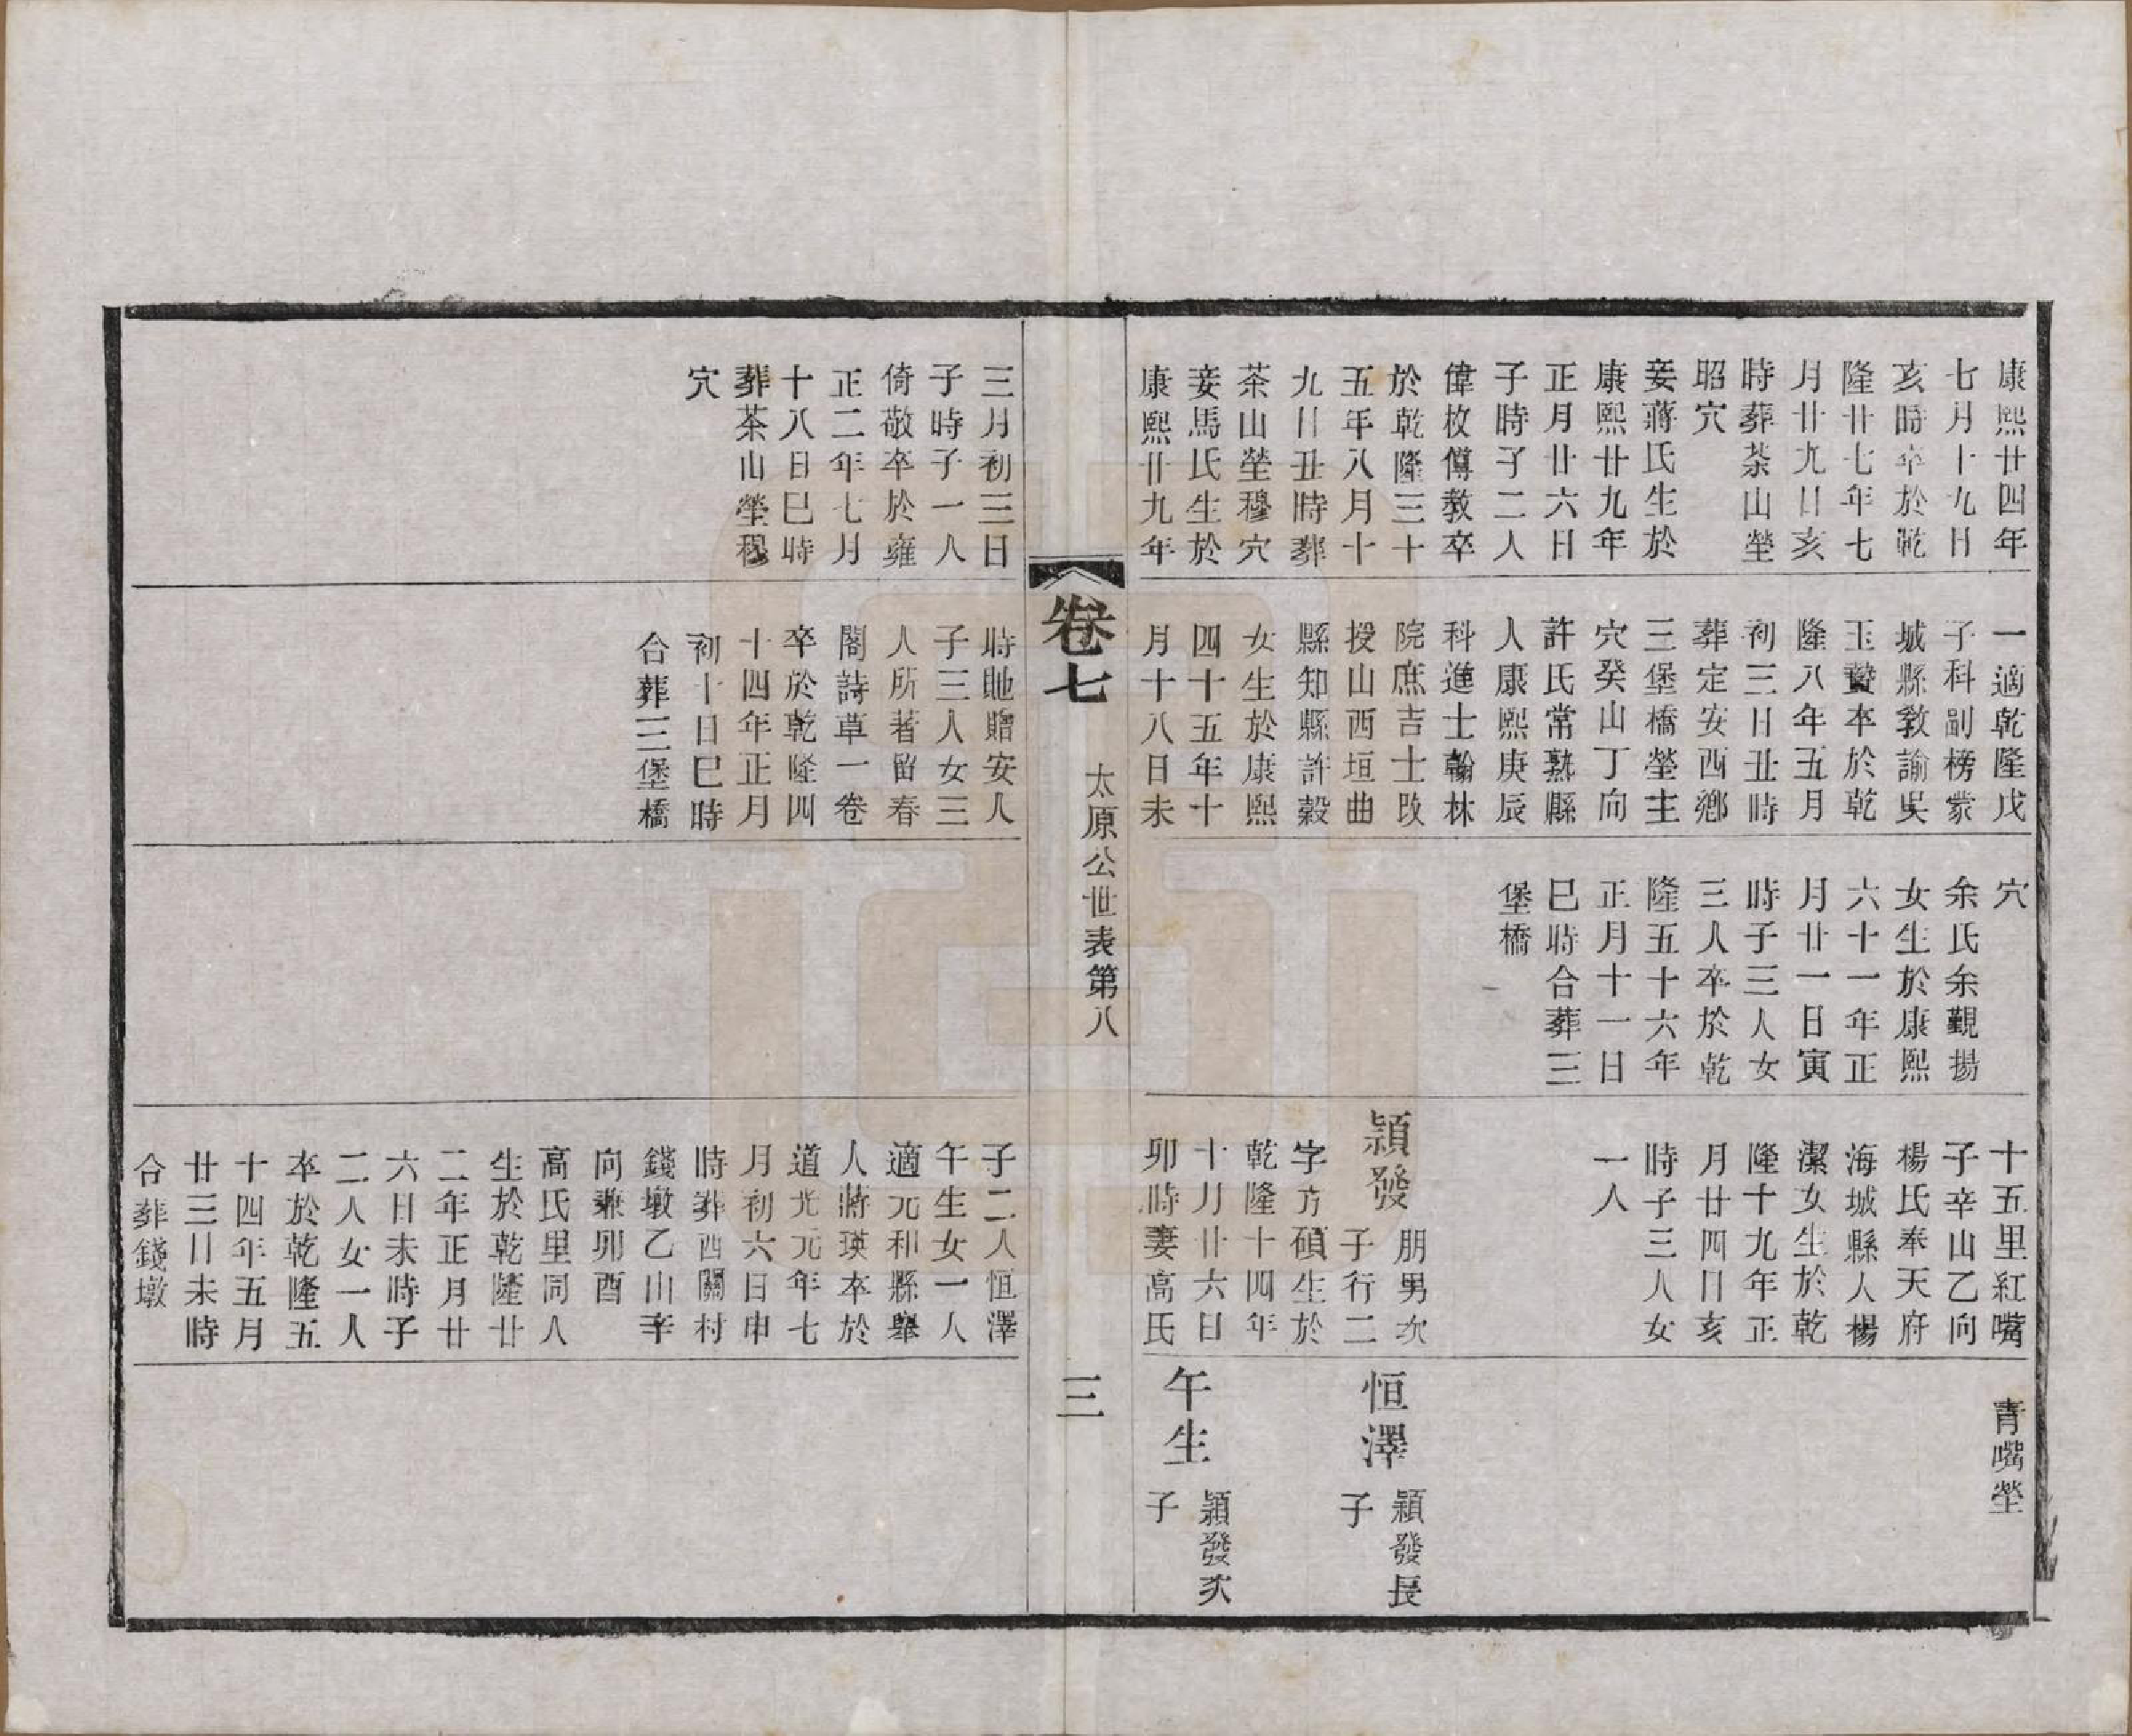 康熙廿四年
七月十九日
亥時卒於乾
隆廿七年七
月廿九日亥
時葬茶山塋
昭穴
妾蔣氏生於
康熙廿九年
正月廿六日
子時子二人
偉枚傅敎卒
於乾隆三十
五年八月十
九日丑時葬
茶山塋穆穴
妾馬氏生於
康熙廿九年
一適乾隆戊
子科副榜蒙
城縣敎諭吳
玉贊卒於乾
隆八年五月
初三日丑時
葬定安西鄉
三堡橋塋主
穴癸山丁向
許氏常熟縣
人康熙庚辰
科進士翰林
院庶吉士改
授山西垣曲
縣知縣許穀
女生於康熙
四十五年十
月十八日未
穴
余氏余觀揚
女生於康熙
六十一年正
月廿一日寅
時子三人女
三人卒於乾
隆五十六年
正月十一日
巳時合葬三
堡橋
十五里紅嘴
子辛山乙向
楊氏奉天府
海城縣人楊
潔女生於乾
隆十九年正
月廿四日亥
時子三人女
一人
穎發
朋男次
子行二
字方碩生於
乾隆十四年
十月廿六日
卯時妻高氏
青嘴塋
恒澤
穎發長
子
午生
穎發次
子
卷七
太原公世表第八
三
三月初三日
子時子一人
倚敬卒於雍
正二年七月
十八日巳時
葬茶山塋穆
穴
時貤贈安人
子三人女三
人所著留春
閣詩草一卷
卒於乾隆四
十四年正月
初十日巳時
合葬三堡橋
子二人恒澤
午生女一人
適元和縣舉
人蔣瑛卒於
道光元年七
月初六日申
時葬西關村
錢墩乙山辛
向兼卯酉
高氏里同人
生於乾隆廿
二年正月廿
六日未時子
二人女一人
卒於乾隆五
十四年五月
廿三日未時
合葬錢墩